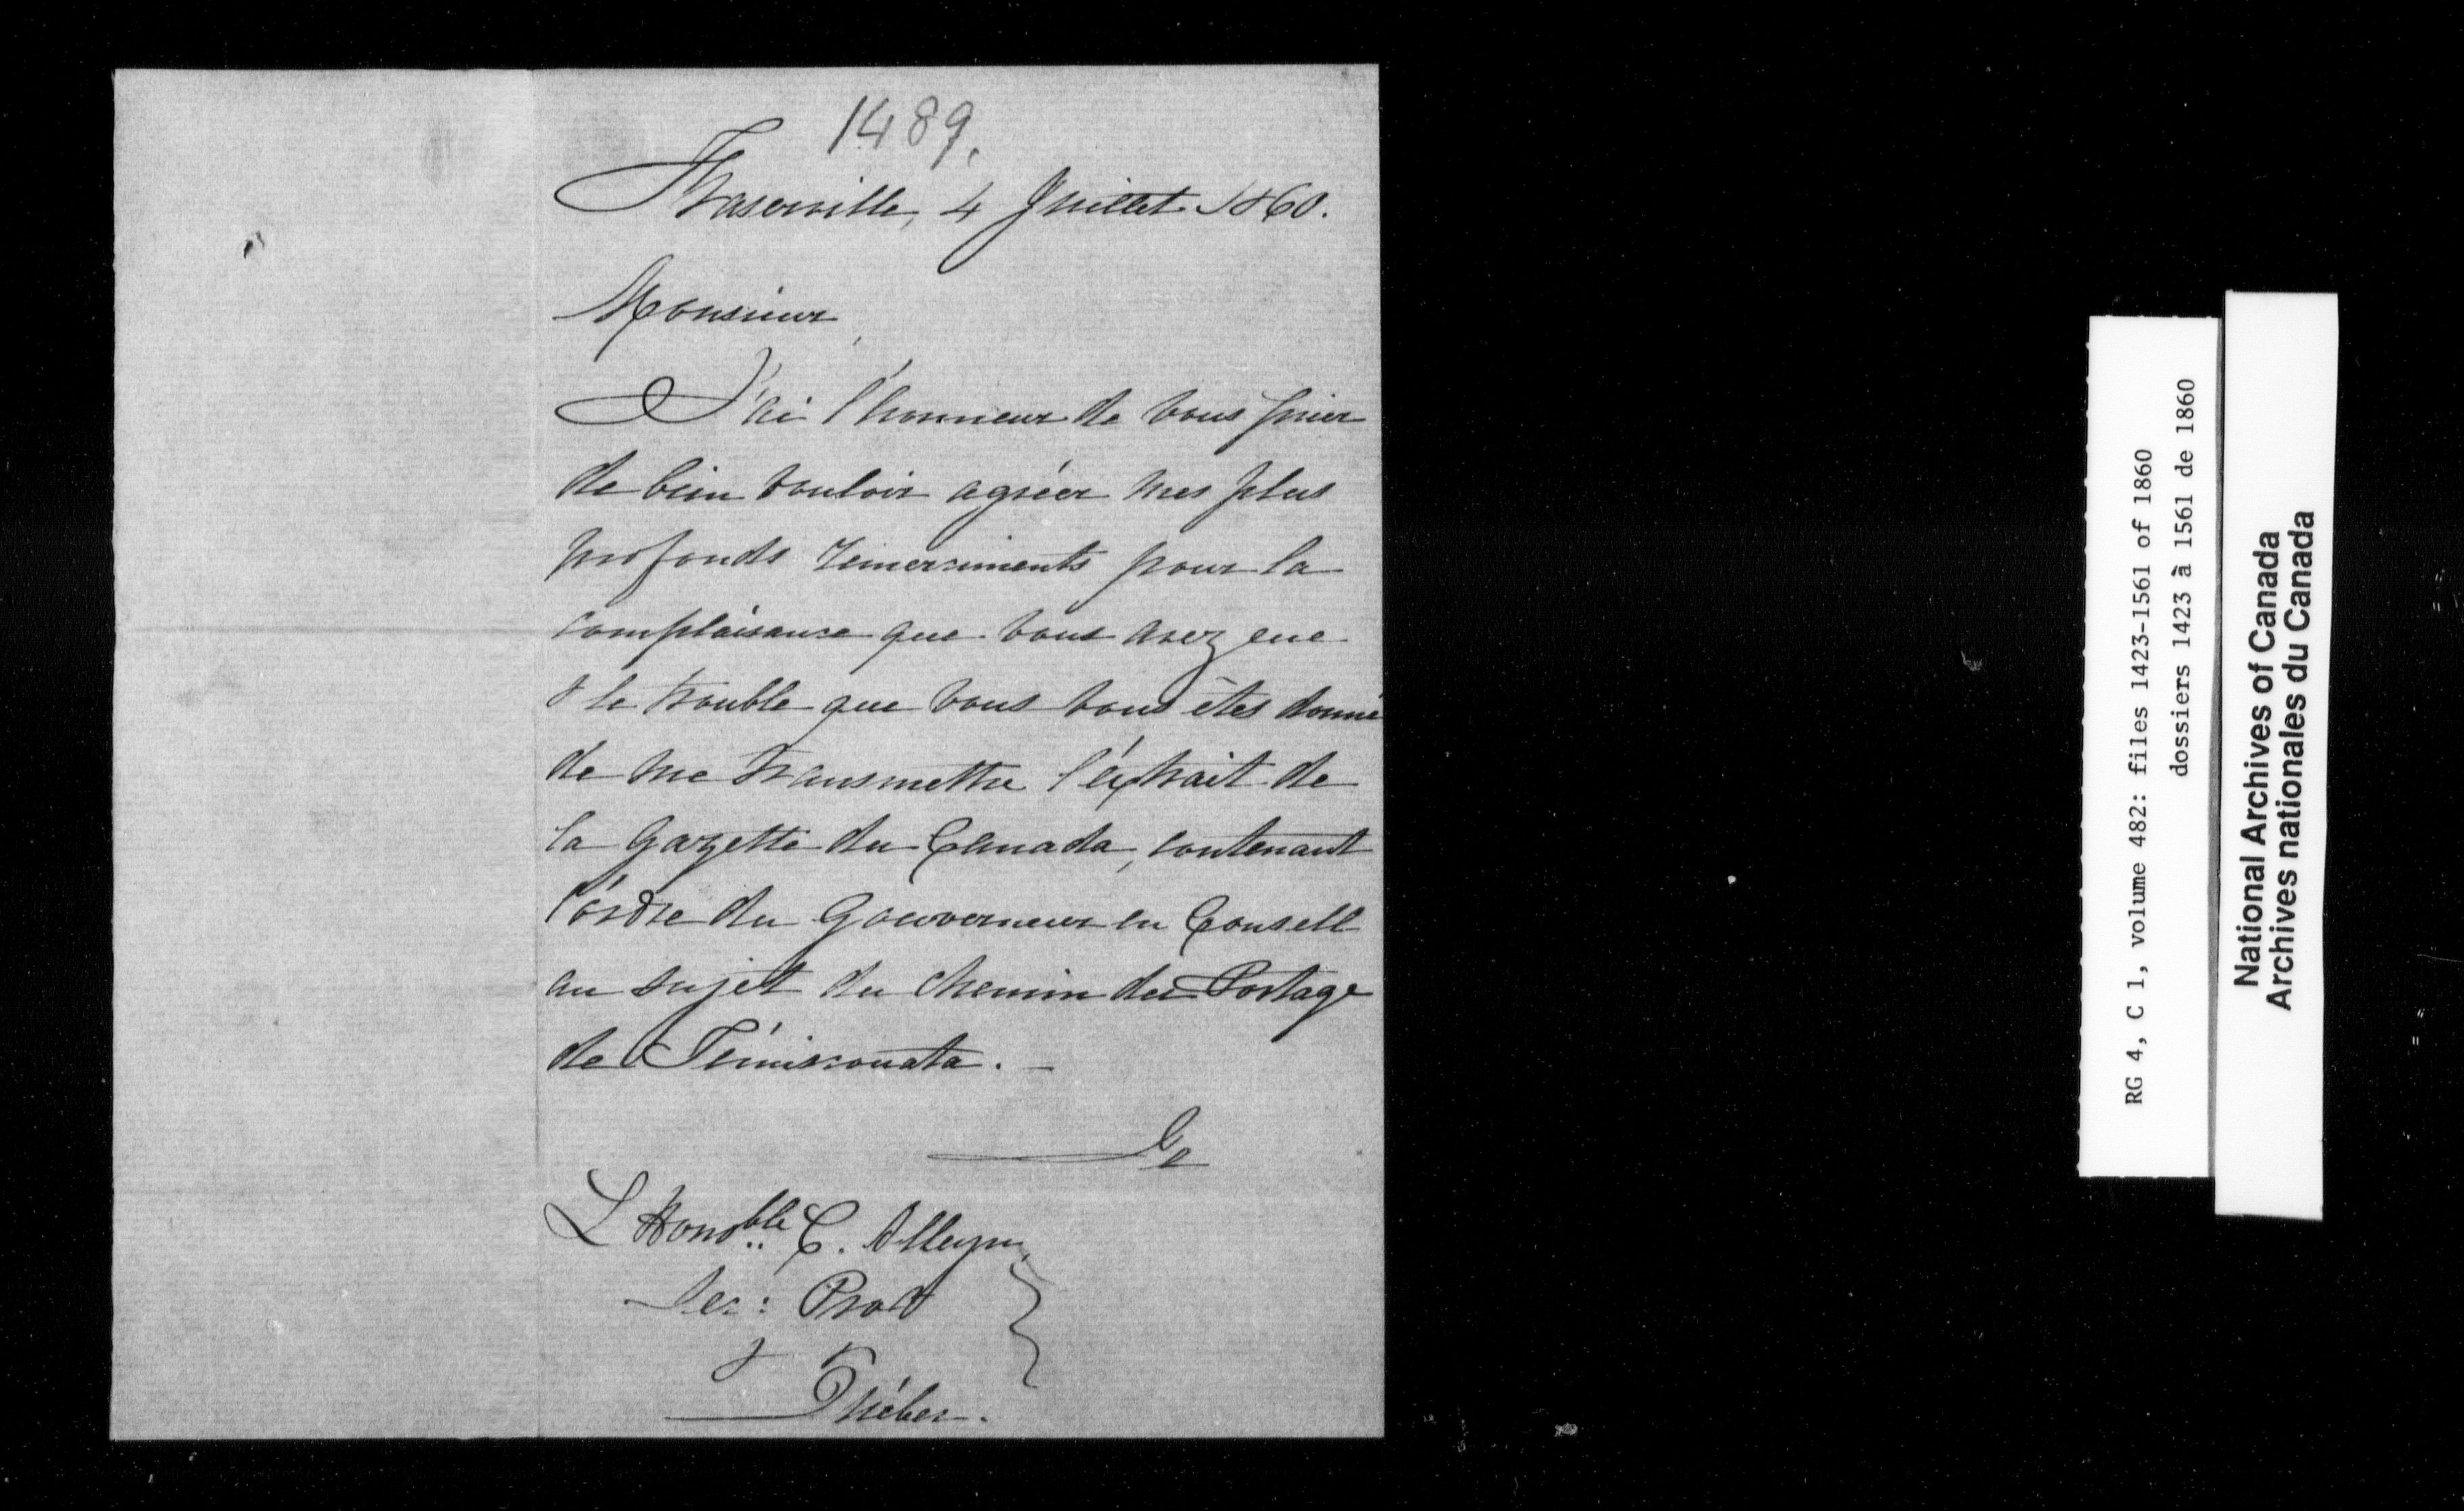 1489.
Fraserville, 4 Juillet 1860.
Monsieur,
J'ai l'honneur de vous prier
de bien vouloir agréer mes plus
profonds remerciments pour la
complaisance que vous avez eue
& le trouble que vous vous êtes donné
de me transmettre l'éxtrait de
la Gazette du Canada, contenant
l'ordre du Gouverneur en Conseil
au sujet du chemin du Portage
de Témiscouata. —
L'Honoble C. Alleyn,
Sec: Prov
&
Québec.
RG 4, C 1, volume 482: files 1423-1561 of 1860
dossiers 1423 à 1561 de 1860
National Archives of Canada
Archives nationales du Canada